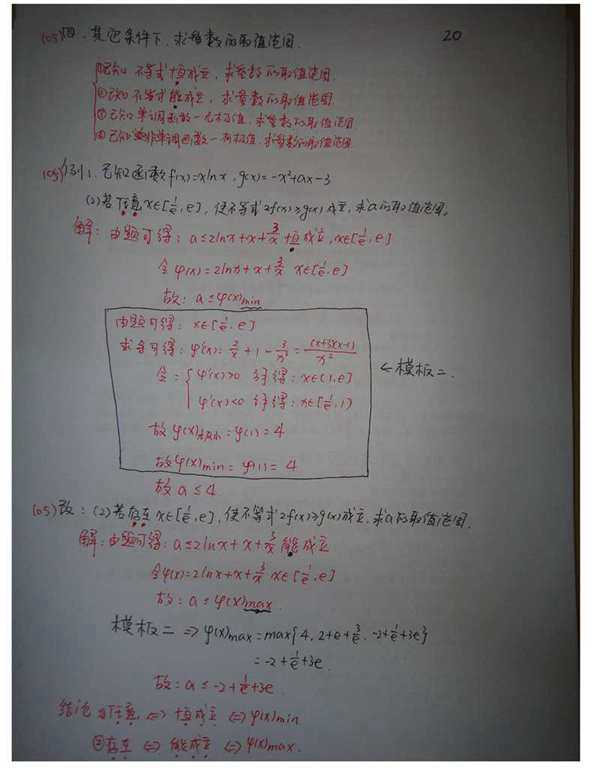 (05)四、其它条件下,求参数的取值范围. 20
①已知不等式恒成立,求参数的取值范围.
②已知不等式能成立,求参数的取值范围.
③已知单调函数—无极值,求参数的取值范围.
④已知非单调函数—有极值,求参数的取值范围.
(05)例1、已知函数f(x)=xlnx,g(x)=-x²+ax-3
(2)若任意x∈[1/e,e],使不等式2f(x)≥g(x)成立,求a的取值范围.
解:由题可得:a≤2lnx+x+3/x恒成立,x∈[1/e,e]
令φ(x)=2lnx+x+3/x x∈[1/e,e]
故:a≤φ(x)min
由题可得:x∈[1/e,e]
求导可得:φ'(x)=2/x+1-3/x²=(x+3)(x-1)/x²
令={φ'(x)>0 得:x∈(1,e]
φ'(x)<0 得:x∈[1/e,1)
←模板二.
故φ(x)极小=φ(1)=4
故φ(x)min=φ(1)=4
故a≤4.
(05)改:(2)若存在x∈[1/e,e],使不等式2f(x)≥g(x)成立,求a的取值范围.
解:由题可得:a≤2lnx+x+3/x能成立
令φ(x)=2lnx+x+3/x x∈[1/e,e]
故:a≤φ(x)max.
模板二⇒φ(x)max=max{4,2+e+3/e,-2+1/e+3e}
=-2+1/e+3e.
故:a≤-2+1/e+3e.
结论①任意⇔恒成立⇔φ(x)min
②存在⇔能成立⇔φ(x)max.